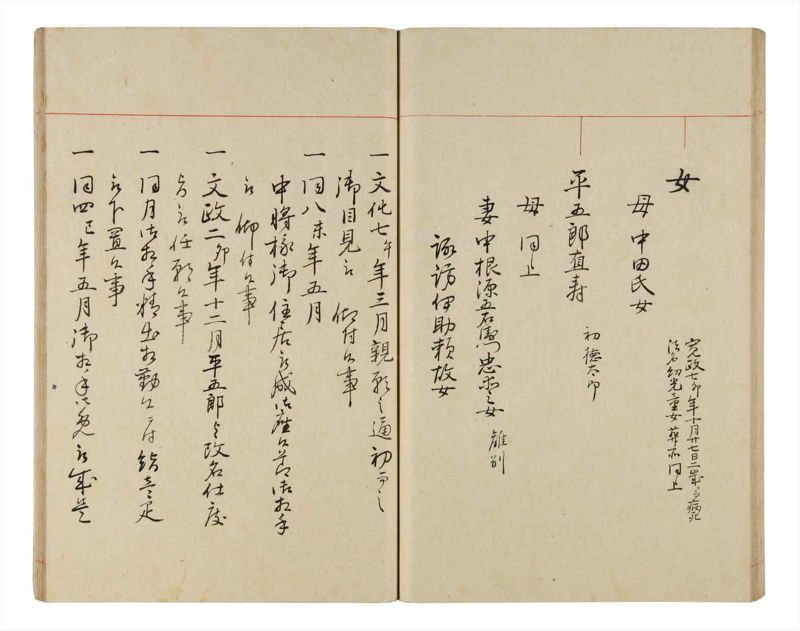 女
寛政七卯年十月廿七日二歳ニ而病死
法名幻光童女葬所同上
母 中田氏女
平五郎直寿
初徳太郎
母 同上
妻 中根源五右衛門忠 女 離別
諏訪伊助頼故女
一 文化七午年三月親願之通初而之
御目見被 仰付候事
一 同八未年五月
中将様御住居被成御座候節御相手
被 仰付候事
一 文政二卯年十二月平五郎与改名仕度
旨被任願候事
一 同月御相手精出相勤候ニ付 疋
被下置候事
一 同四巳年五月御相手御免被成